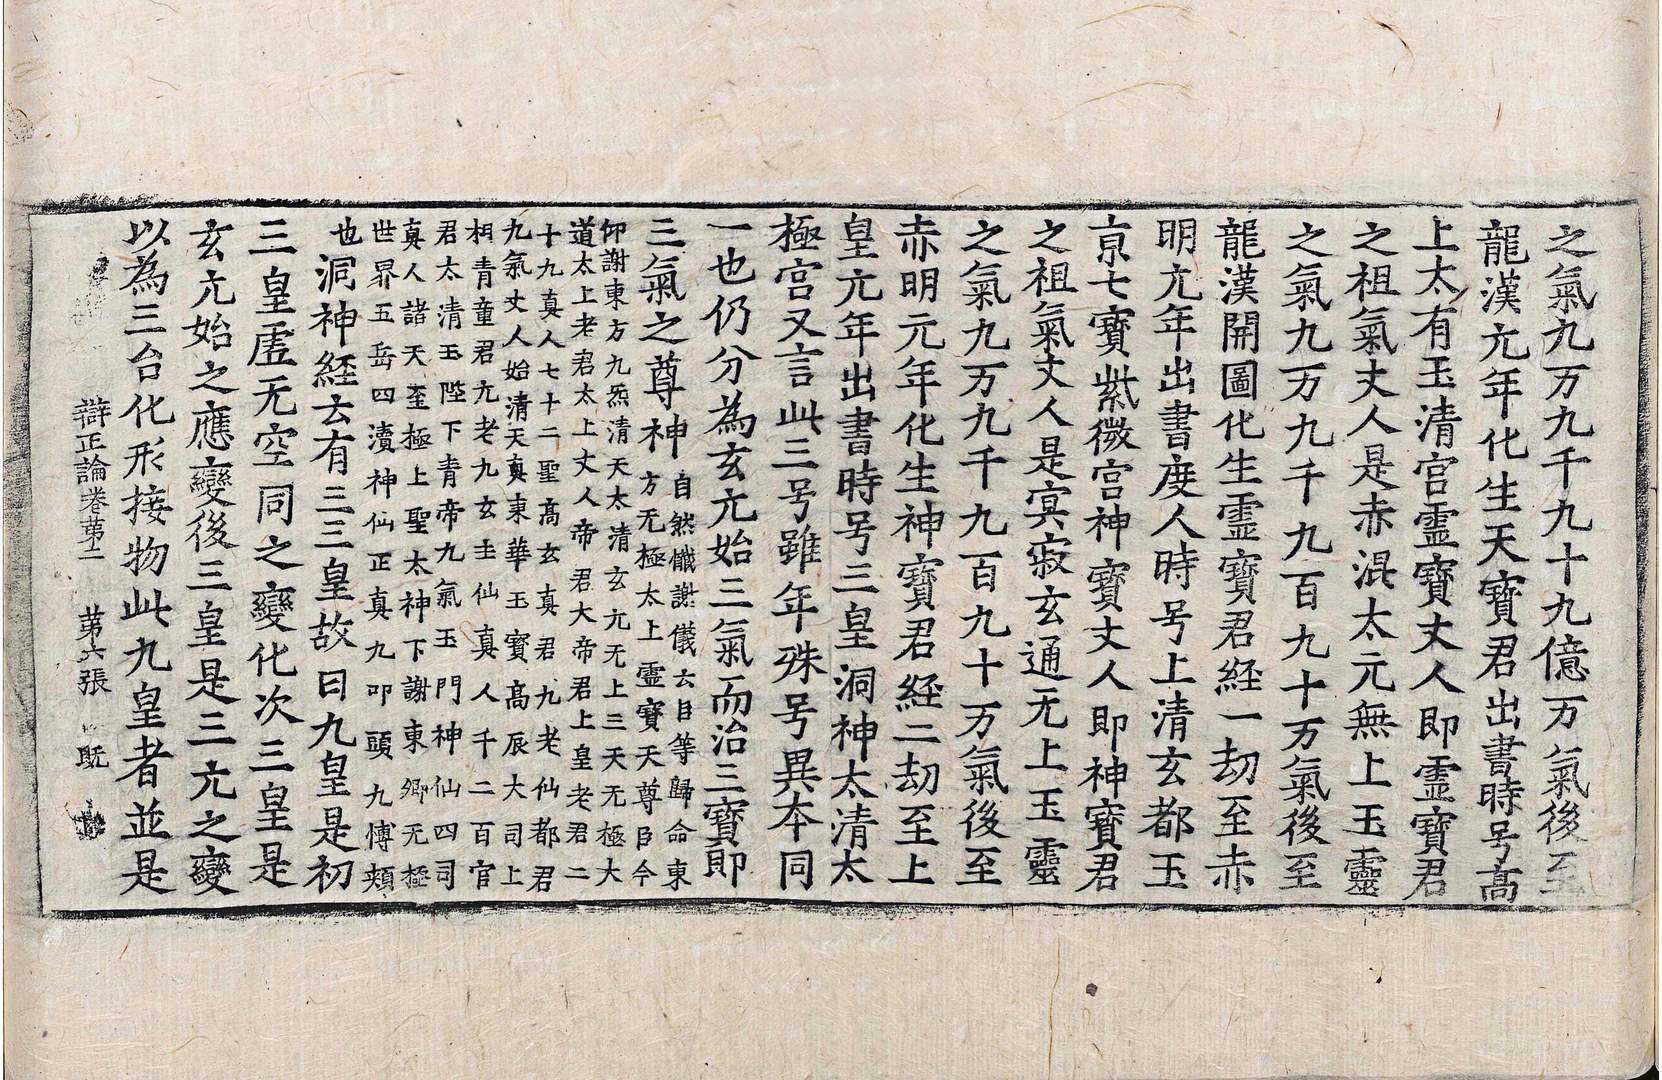 之氣九万九千九十九億万氣後至
龍漢亢年化生天寶君出書時号高
上太有玉清宮霊寶丈人即霊寶君
之祖氣丈人是赤混太元無上玉靈
之氣九万九千九百九十万氣後至
龍漢開圖化生霊寶君経一劫至赤
明亢年出書度人時号上清玄都玉
京七寶紫微宮神寶丈人即神寶君
之祖氣丈人是冥寂玄通无上玉靈
之氣九万九千九百九十万氣後至
赤明元年化生神寶君経二劫至上
皇亢年出書時号三皇洞神太清太
極宮又言此三号雖年殊号異本同
一也仍分為玄亢始三氣而治三寶即
三氣之尊神
自然懺謝儀云臣等歸命東
方无極太上霊寶天尊臣今
仰謝東方九炁清天太清玄亢无上三天无極大
道太上老君太上丈人帝君大帝君上皇老君二
十九真人七十二聖高玄真君九老仙都君
九氣丈人始清天真東華玉寳高辰大司上
相青童君九老九玄主仙真人千二百官
君太清玉陛下青帝九氣玉門神仙四司
真人諸天至極上聖太神下謝東郷无極
世界五岳四瀆神仙正真九叩頭九愽頰
也洞神経云有三三皇故曰九皇是初
三皇虗无空同之變化次三皇是
玄亢始之應變後三皇是三亢之變
以為三台化形接物此九皇者並是
辯正論卷苐二 苐六張 既